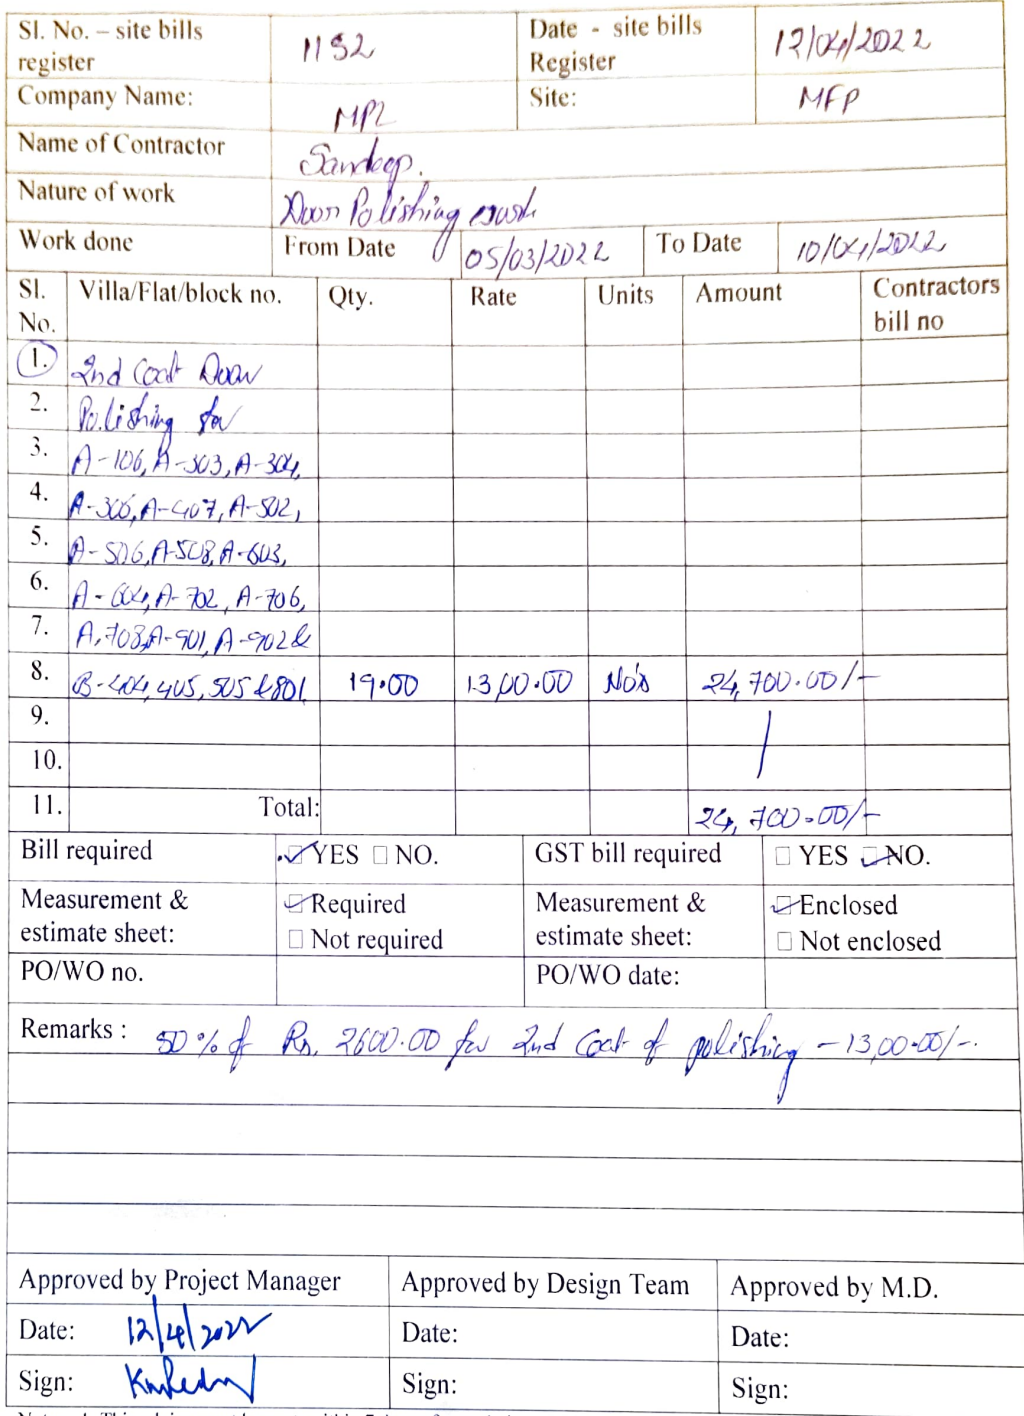 Sl. No. – site bills register 1152 Date - site bills Register 12/04/2022
Company Name: MPL Site: MFP
Name of Contractor Sandeep.
Nature of work Door Polishing work
Work done From Date 05/03/2022 To Date 10/04/2022
Sl. No. Villa/Flat/block no. Qty. Rate Units Amount Contractors bill no
1. 2nd Coat Door
2. Polishing for
3. A-106, A-303, A-304,
4. A-306, A-407, A-502,
5. A-506, A-508, A-603,
6. A-604, A-702, A-706,
7. A-708, A-901, A-902 &
8. B-404, 405, 505 & 801, 19.00 13,00.00 No's 24,700.00/-
9.
10.
11. Total: 24,700.00/-
Bill required YES NO. GST bill required YES NO.
Measurement & estimate sheet: Required Not required Measurement & estimate sheet: Enclosed Not enclosed
PO/WO no. PO/WO date:
Remarks : 50% of Rs. 2600.00 for 2nd Coat of polishing - 13,00.00/-.
Approved by Project Manager Approved by Design Team Approved by M.D.
Date: 12/4/2022 Date: Date:
Sign: Sign: Sign: